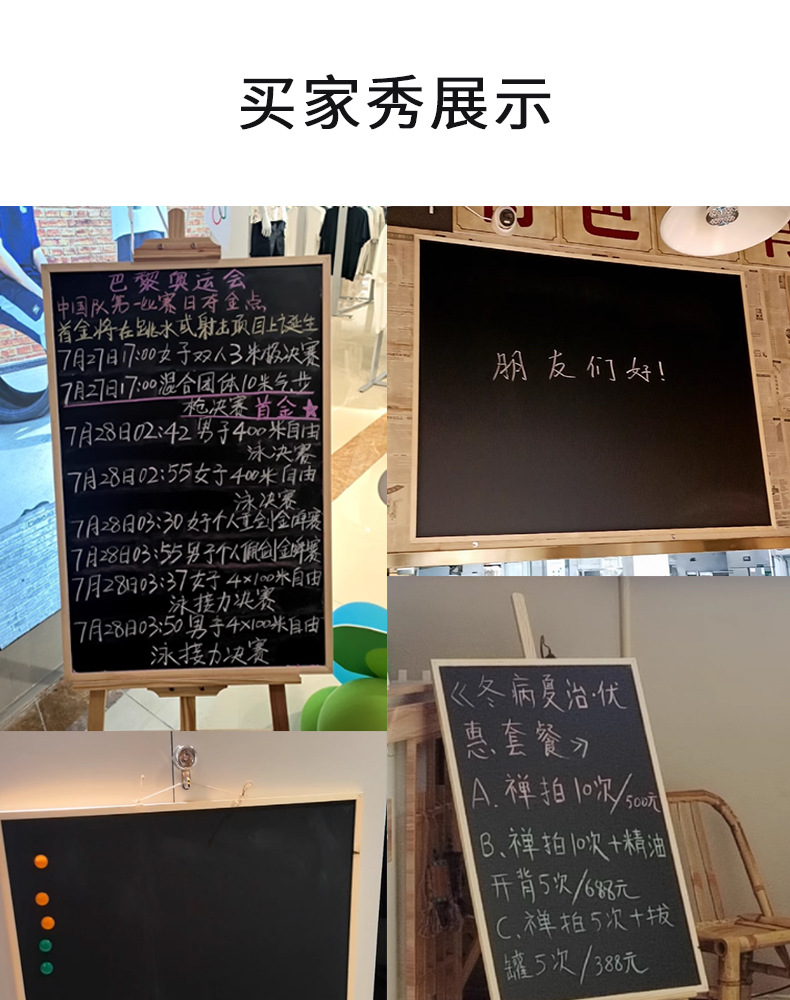 买家秀展示
巴黎奥运会
中国队第一比赛日夺金点
首金将在跳水或射击项目上诞生
7月27日17:00女子双人3米板决赛
7月27日17:00混合团体10米气步
枪决赛 首金★
7月28日02:42男子400米自由
泳决赛
7月28日02:55女子400米自由
泳决赛
7月28日03:30女子个人重剑金牌赛
7月28日03:55男子个人佩剑金牌赛
7月28日03:37女子4×100米自由
泳接力决赛
7月28日03:50男子4×100米自由
泳接力决赛
色
朋友们好!
《冬病夏治·优
惠套餐》
A.禅拍10次/500元
B.禅拍10次+精油
开背5次/688元
C.禅拍5次+拔
罐5次/388元